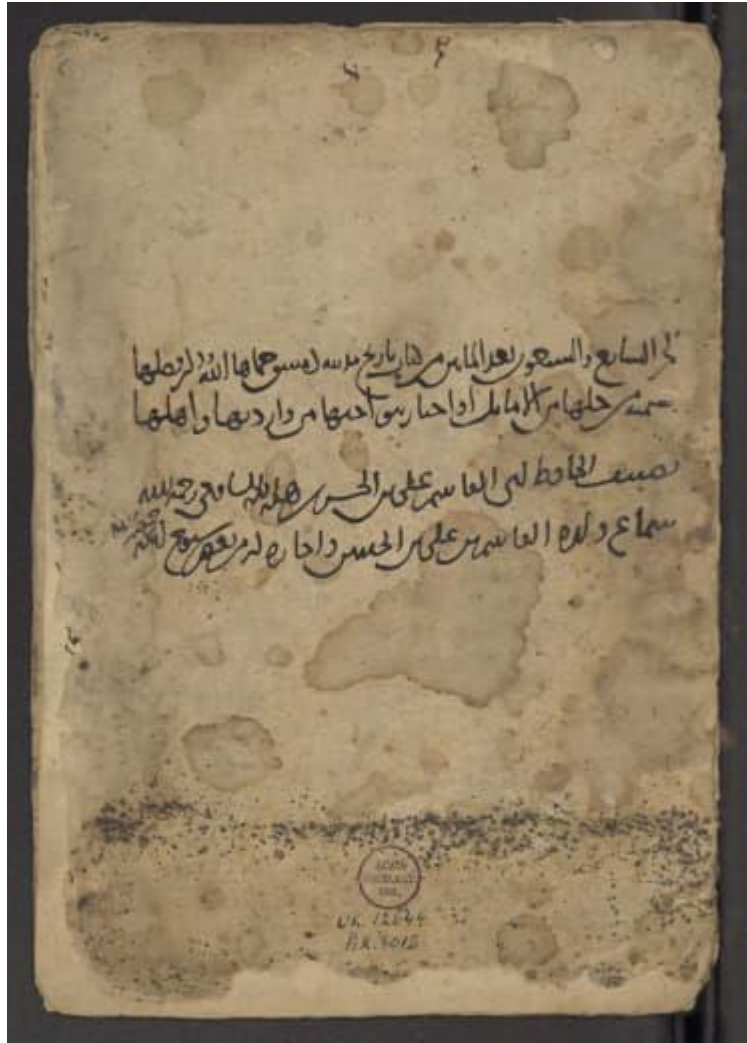 السابع والسبعون بعد المايتين من كتاب تاريخ مدينة دمشق حماها الله وذكر فضلها
وتسمية من حلها من الاماثل أو اجتاز بنواحيها من وارديها وأهلها
تصنيف الحافظ ابي القاسم علي بن الحسن بن هبة الله الشافعي رحمه الله
سماع ولده القاسم بن علي بن الحسن واجازة له من بعض شيوخ
UK. 12644